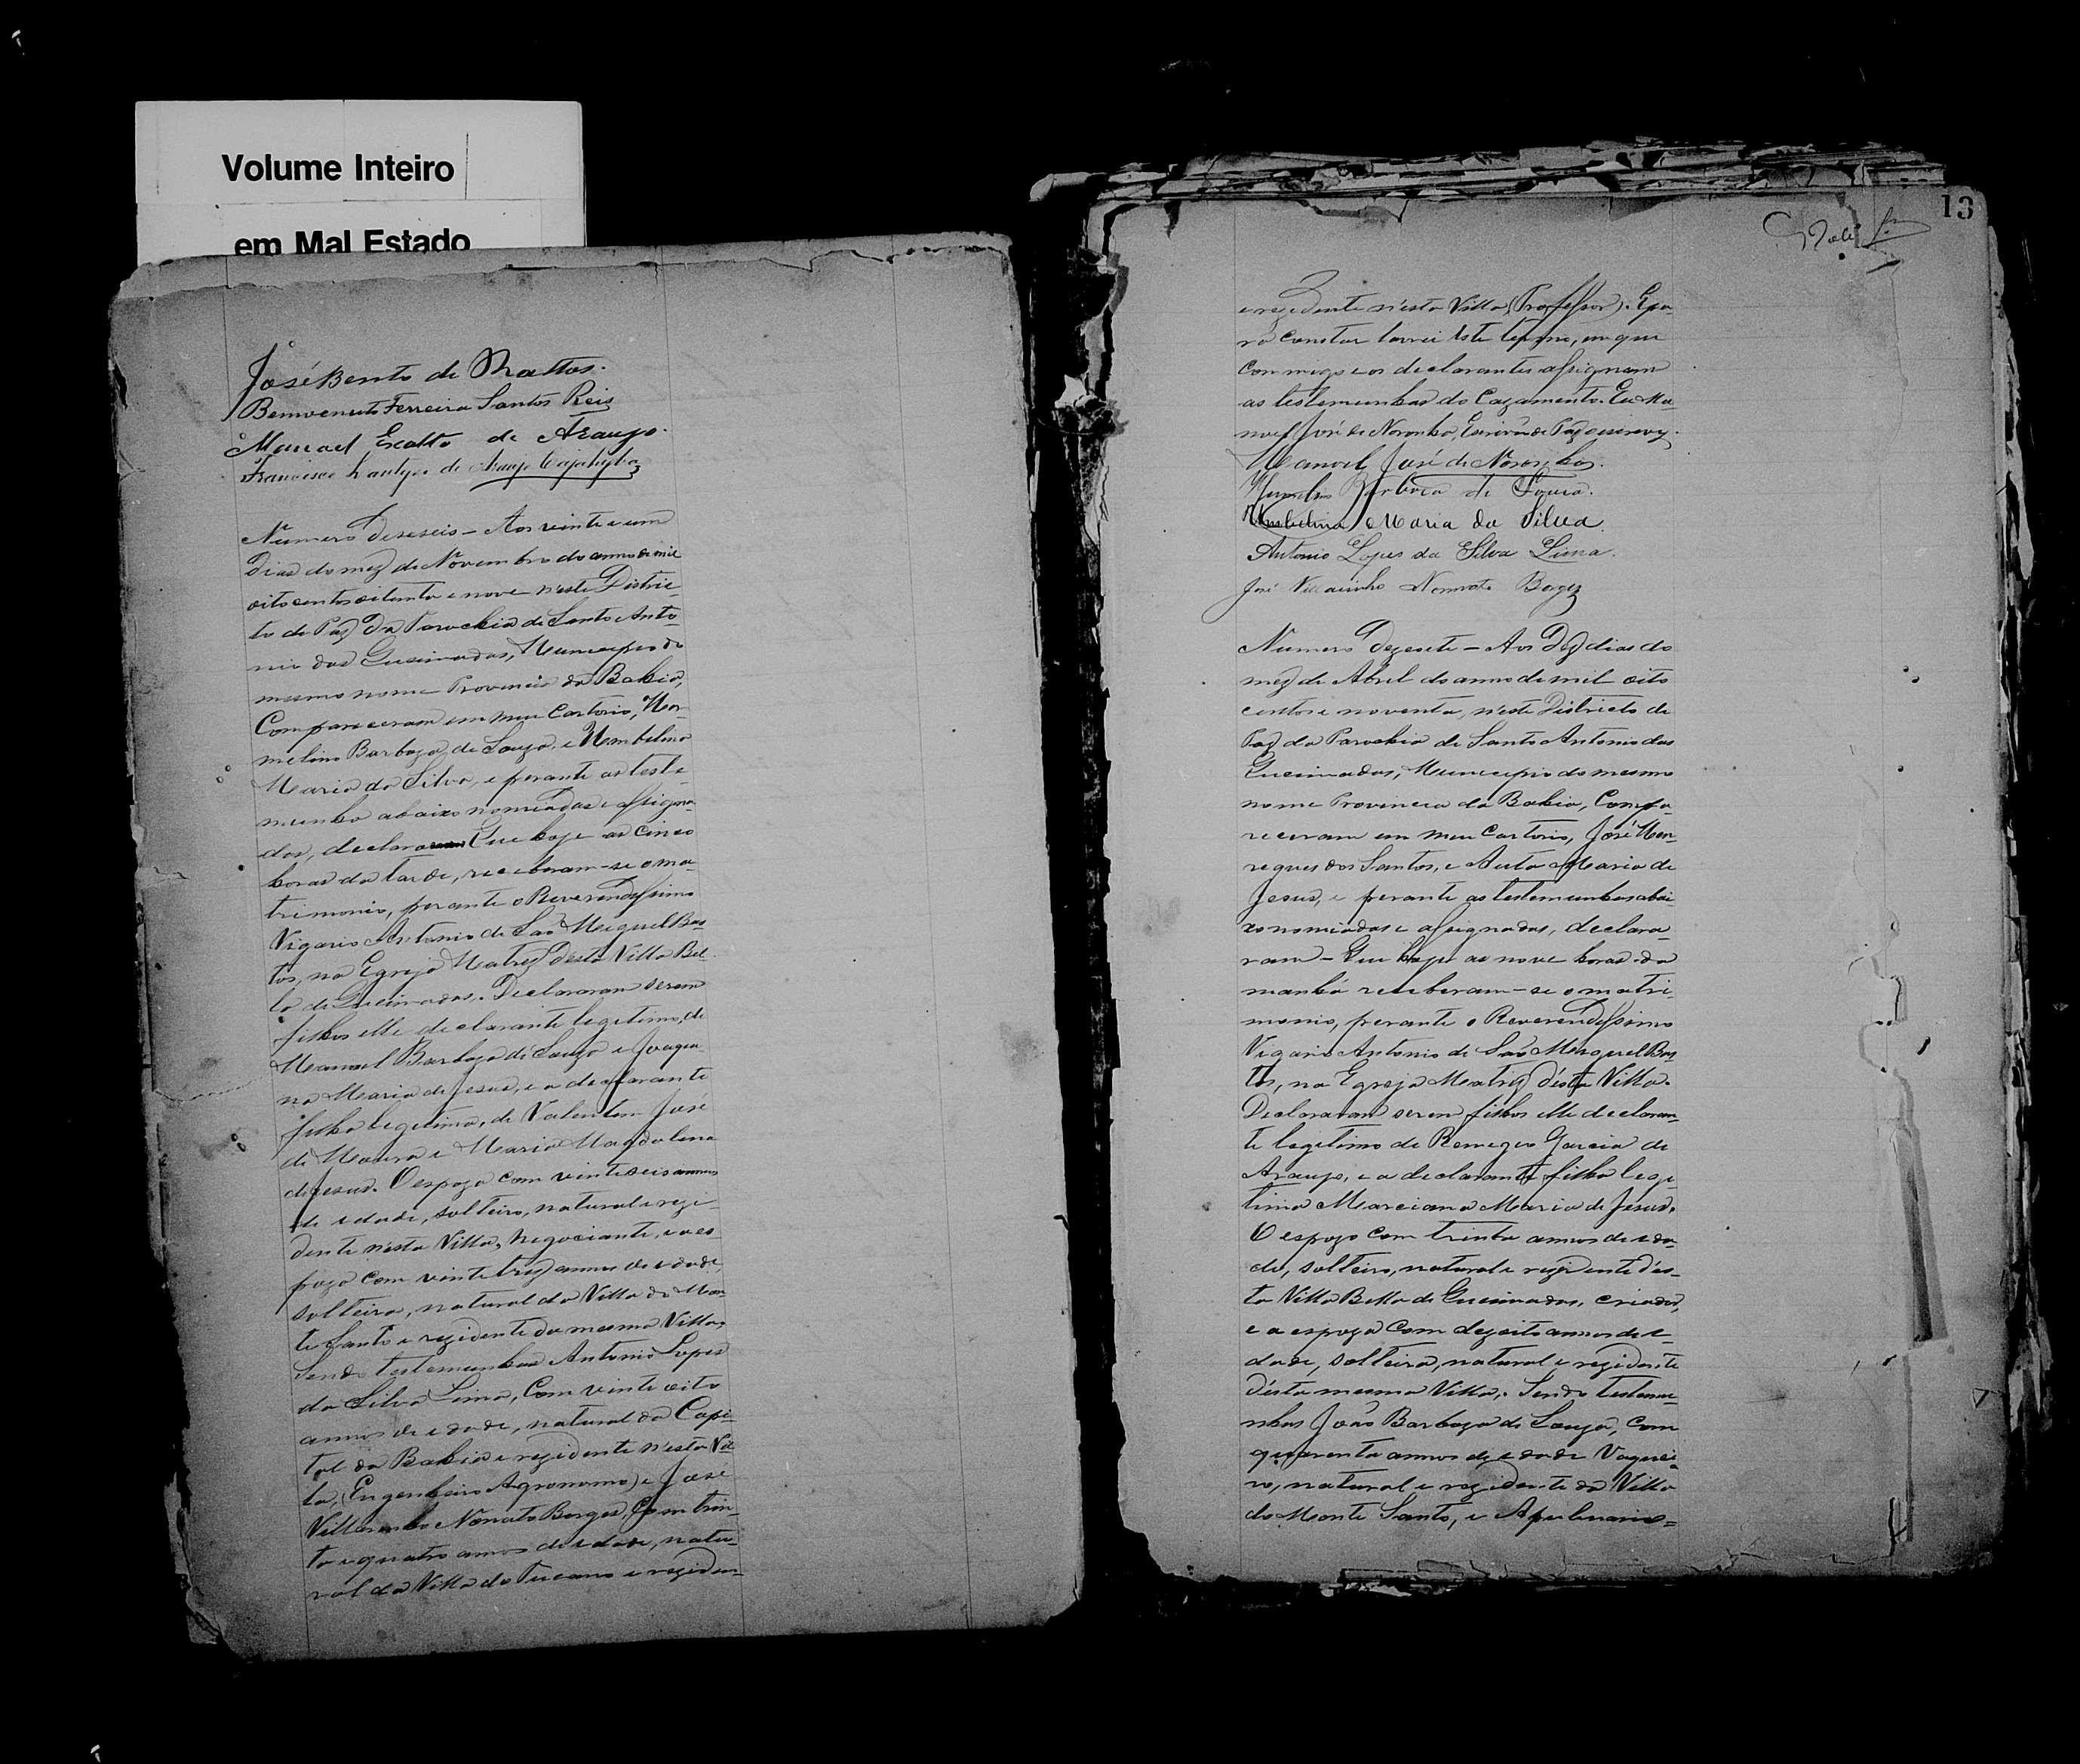 Volume Inteiro
em Mal Estado
José Bento de Mattos.
Benvenuto Ferreira Santos Reis
Manoel Exalto de Araujo.
Francisco de Araujo Cajahyba
Numero deseseis - Aos vinte e um
dias do mez de Novembro do anno de mil
oito centos oitenta e nove n'este Distric-
to de Paz da Parochia de Santo Anto-
nio das Queimadas, Municipio do
mesmo nome Provincia da Bahia,
Compareceram em meu Cartorio, Her-
melino Barboza de Souza, e Umbelina
Maria da Silva, e perante as teste-
munhas abaixo nomeadas e assigna-
das, declararam Que hoje as cinco
horas da tarde, receberam-se em ma-
trimonio, perante o Reverendissimo
Vigario Antonio de São Meiguel Bas-
tos, na Egreja Matriz desta Villa Bel-
la de Queimadas. Declararam serem
filhos elle declarante legitimo, de
Manoel Barboza de Souza e Joaqui-
na Maria de Jesus, e a declarante
filha legitima, de Valentim José
de Moura e Maria Magdalena
de Jesus. O espozo com vinte seis annos
de edade, solteiro, natural e rezi-
dente n'esta Villa, Negociante, e a es-
poza com vinte trez annos de edade,
solteira, natural da Villa do Mon-
te Santo e rezidente da mesma Villa,
Sendo testemunhas Antonio Lopes
da Silva Lima, Com vinte oito
annos de edade, natural da Capi-
tal da Bahia e rezidente n'esta Vil-
la, (Engenheiro Agronomo) e José
Villarinho Nonato Borges, Com trin-
ta e quatro annos de edade, natu-
ral da Villa do Tucano e reziden-
13
e rezidente n'esta Villa (Professor). E pa-
ra constar lavrei este termo, em que
commigo e os declarantes assignam
as testemunhas do Cazamento. Eu Ma-
noel José de Noronha, Escrivão de Paz o escrevy.
Manoel José de Noronha.
Hermelino Barboza de Souza.
Umbelina Maria da Silva
Antonio Lopes da Silva Lima.
José Villarinho Nonnato Borges
Numero Dezesete - Aos Dez dias do
mez de Abril do anno de mil oito
centos e noventa, n'este Districto de
Paz da Parochia de Santo Antonio das
Queimadas, Municipio do mesmo
nome Provincia da Bahia, Compa-
receram em meu Cartorio, José Hen-
reques dos Santos, e Auta Maria de
Jesus, e perante as testemunhas abai-
xo nomeadas e assignadas, declara-
ram - Que hoje as nove horas da
manhã receberam-se em matri-
monio, perante o Reverendissimo
Vigario Antonio de São Meiguel Bas-
tos, na Egreja Matriz d'esta Villa.
Declararam serem filhos elle declaran-
te legitimo de Remegio Garcia de
Araujo, e a declarante filha legi-
tima Marciana Maria de Jesus.
O espozo com trinta annos de eda-
de, solteiro, natural e rezidente d'es-
ta Villa Bella de Queimadas, criador,
e a espoza com dezoito annos de e-
dade, solteira, natural e rezidente
d'esta mesma Villa, Sendo testemu-
nhas João Barboza de Souza, com
quarenta annos de edade Vaquei-
ro, natural e rezidente da Villa
do Monte Santo, e Apolinario=